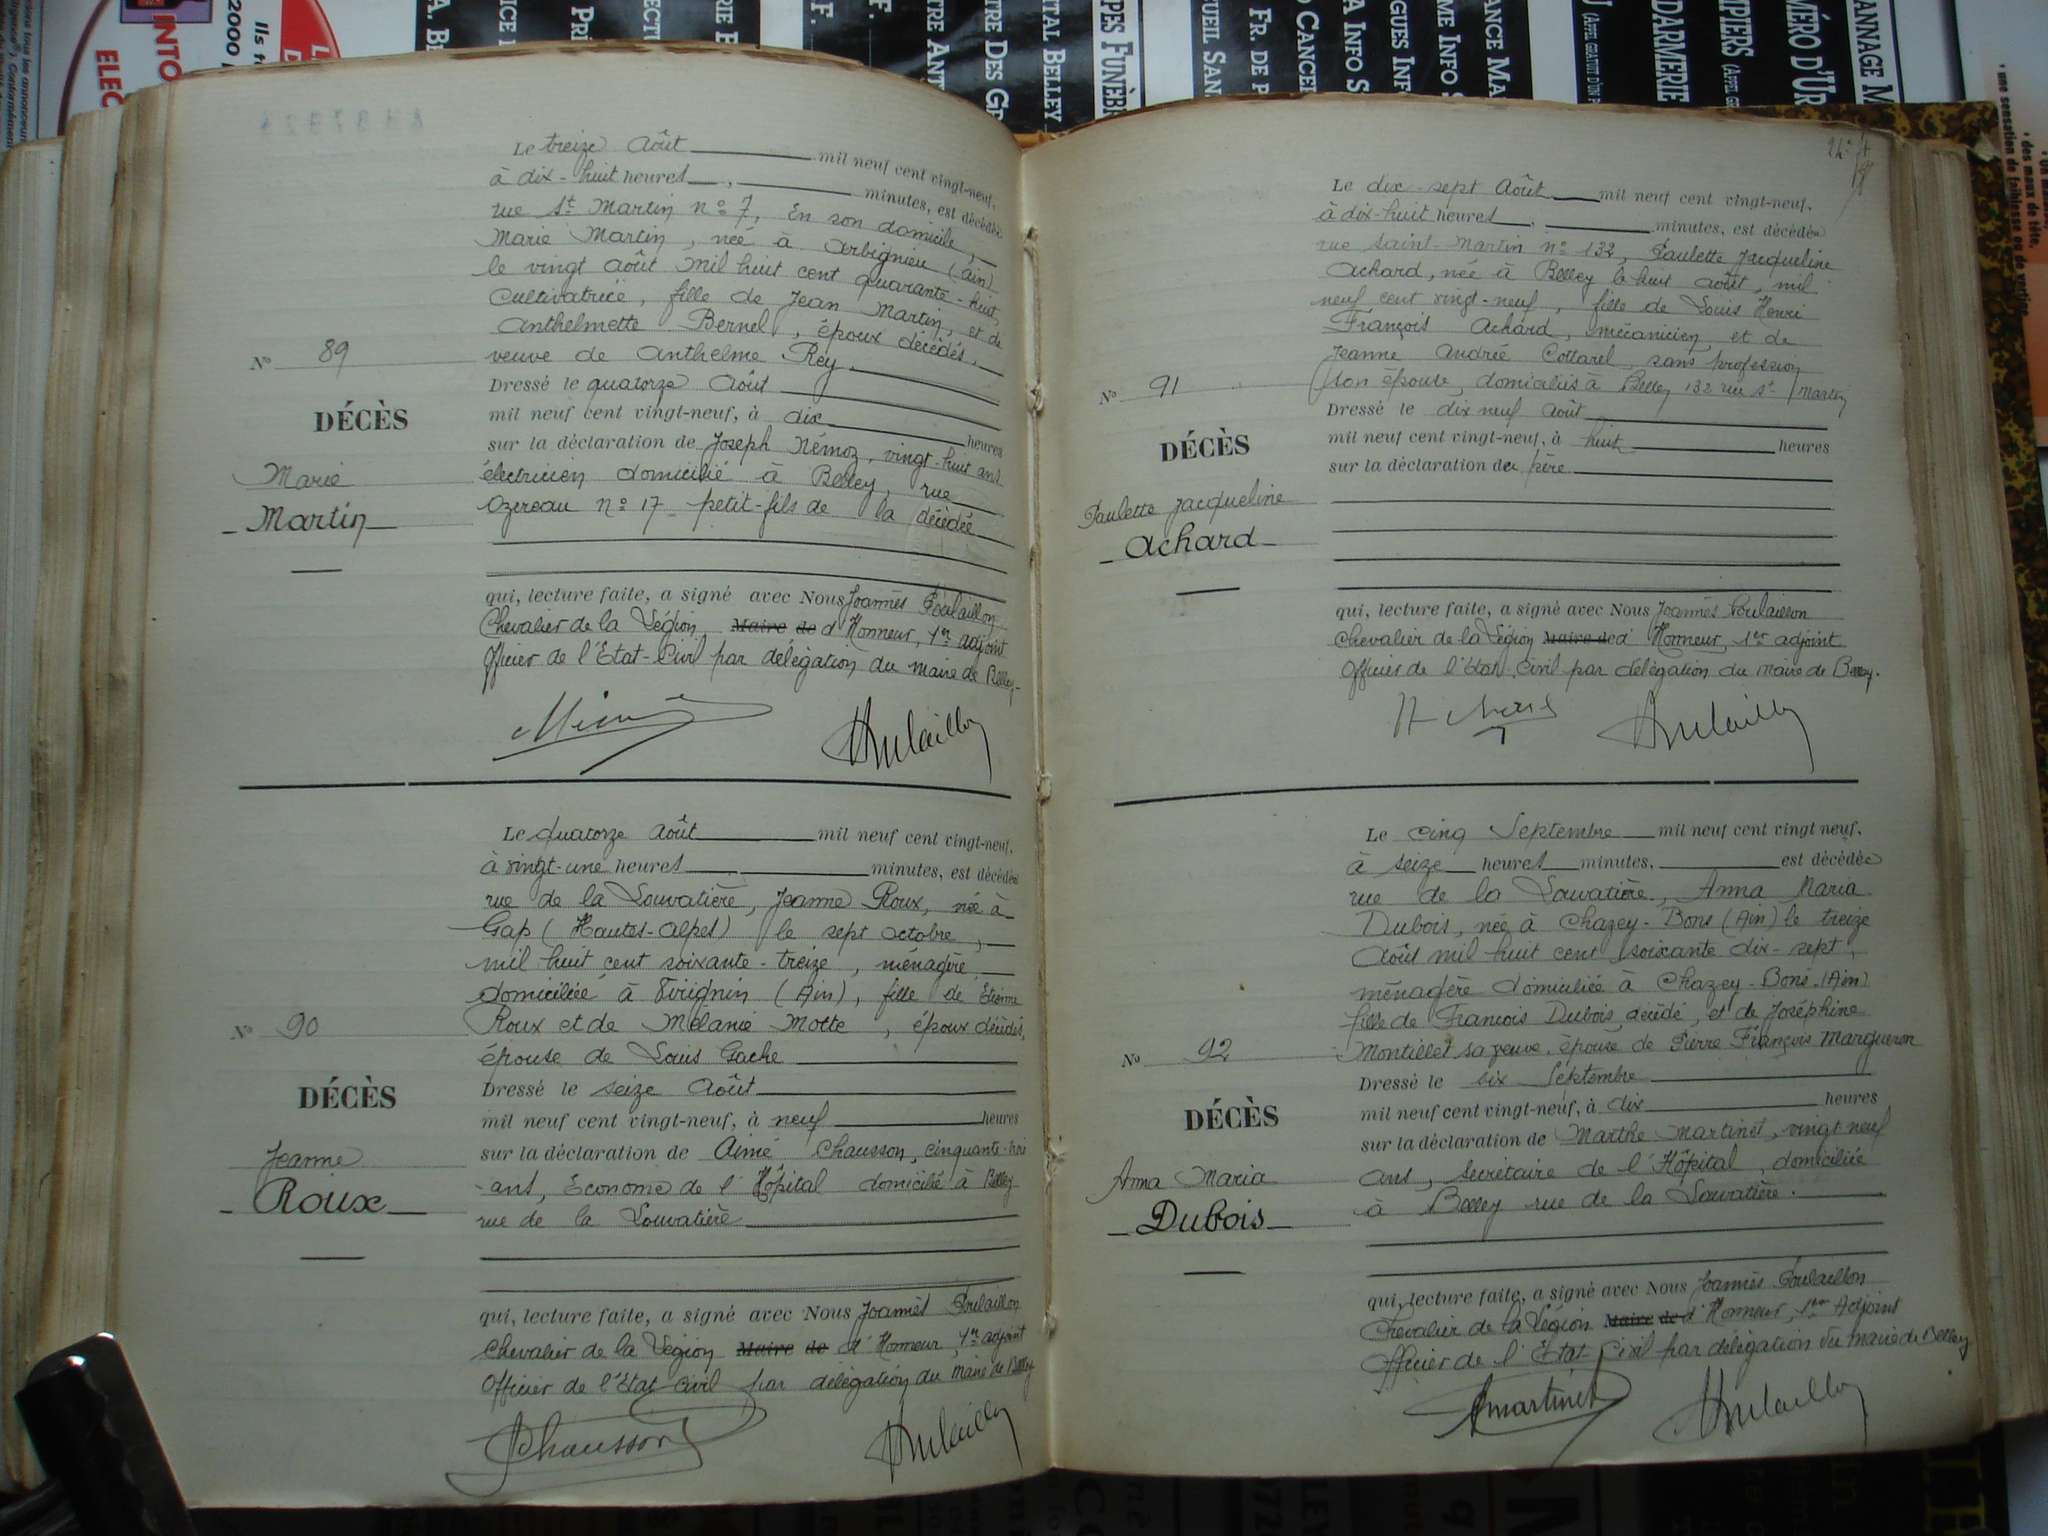 Le treize Août mil neuf cent vingt-neuf,
à dix-huit heures , minutes, est décédée
rue St Martin n° 7, en son domicile,
Marie Martin, née à Arbignieu (Ain)
le vingt août mil huit cent quarante-huit,
Cultivatrice, fille de Jean Martin, et de
Anthelmette Bernel, époux décédés,
veuve de Anthelme Rey
N° 89
DÉCÈS
Marie
Martin
Dressé le quatorze Août
mil neuf cent vingt-neuf, à dix heures
sur la déclaration de Joseph Némoz, vingt-huit ans
électricien domicilié à Belley, rue
Ozereau n° 17 petit-fils de la décédée
qui, lecture faite, a signé avec Nous Joannès Poulaillon
Chevalier de la Légion Maire de d'Honneur, 1er adjoint
Officier de l'Etat-Civil par délégation du maire de Belley
Le quatorze Août mil neuf cent vingt-neuf,
à vingt-une heures , minutes, est décédée
rue de la Louvatière, Jeanne Roux, née à
Gap (Hautes-Alpes) le sept octobre,
mil huit cent soixante-treize, ménagère,
domiciliée à Virignin (Ain), fille de Etienne
Roux et de Mélanie Motte, époux décédés,
épouse de Louis Gache
N° 90
DÉCÈS
Jeanne
Roux
Dressé le seize Août
mil neuf cent vingt-neuf, à neuf heures
sur la déclaration de Aimé Chausson, cinquante-trois
ans, Econome de l'Hôpital domicilié à Belley
rue de la Louvatière
qui, lecture faite, a signé avec Nous Joannès Poulaillon
Chevalier de la Légion Maire de d'Honneur, 1er adjoint
Officier de l'Etat-Civil par délégation du maire de Belley
Chausson Poulaillon
Le dix-sept Août mil neuf cent vingt-neuf,
à dix-huit heures , minutes, est décédée
rue Saint-Martin n° 132, Paulette Jacqueline
Achard, née à Belley le huit août, mil
neuf cent vingt-neuf, fille de Louis Henri
François Achard, mécanicien, et de
Jeanne Andrée Cottarel, sans profession
son épouse, domiciliés à Belley 132 rue St Martin
N° 91
DÉCÈS
Paulette Jacqueline
Achard
Dressé le dix neuf Août
mil neuf cent vingt-neuf, à huit heures
sur la déclaration du père
qui, lecture faite, a signé avec Nous Joannès Poulaillon
Chevalier de la Légion Maire de d'Honneur, 1er adjoint
Officier de l'Etat-Civil par délégation du Maire de Belley.
Le cinq Septembre mil neuf cent vingt neuf,
à seize heures minutes, est décédée
rue de la Louvatière, Anna Maria
Dubois, née à Chazey-Bons (Ain) le treize
Août mil huit cent soixante dix-sept,
ménagère domiciliée à Chazey-Bons (Ain)
fille de François Dubois, décédé, et de Joséphine
Montillet sa veuve, épouse de Pierre François Margueron
N° 92
DÉCÈS
Anna Maria
Dubois
Dressé le six Septembre
mil neuf cent vingt-neuf, à dix heures
sur la déclaration de Marthe Martinet, vingt neuf
ans, secrétaire de l'Hôpital, domiciliée
à Belley rue de la Louvatière.
qui, lecture faite, a signé avec Nous Joannès Poulaillon
Chevalier de la Légion Maire de d'Honneur, 1er Adjoint
Officier de l'Etat-Civil par délégation du maire de Belley
Martinet Poulaillon